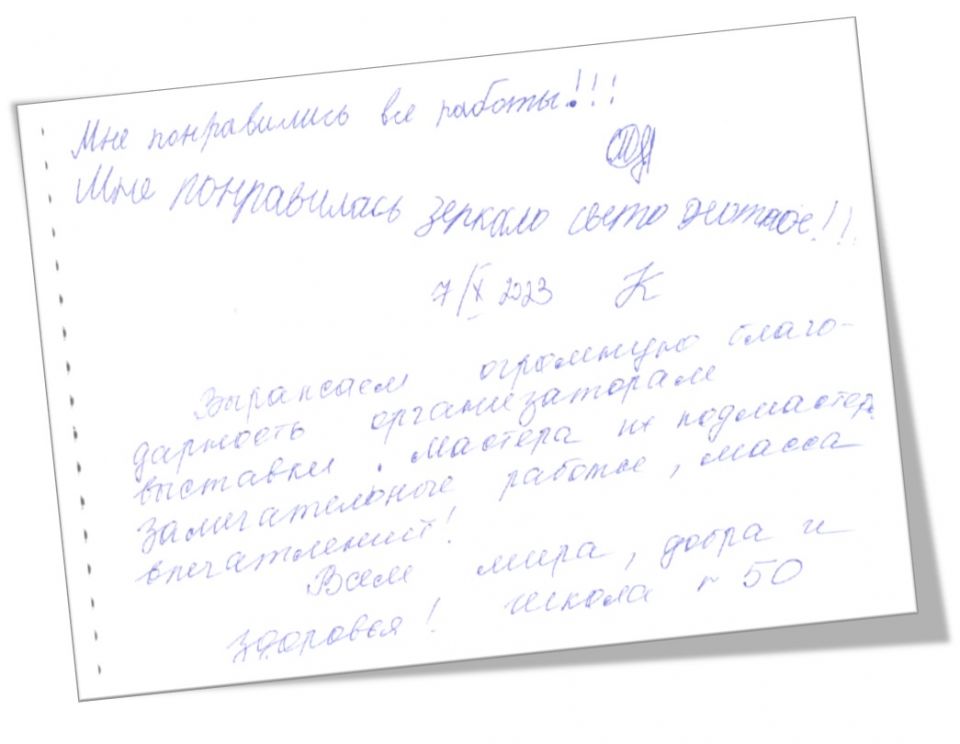 Мне понравились все работы!!!
Мне понравилась зеркало свето !!!
7/X 2023 К
Выражаем огромную благо-
дарность организаторам
выставки. Мастера их подмастер.
замечательные работы, масса
впечатлений!
Всем мира, добра и
здоровья! школа 50